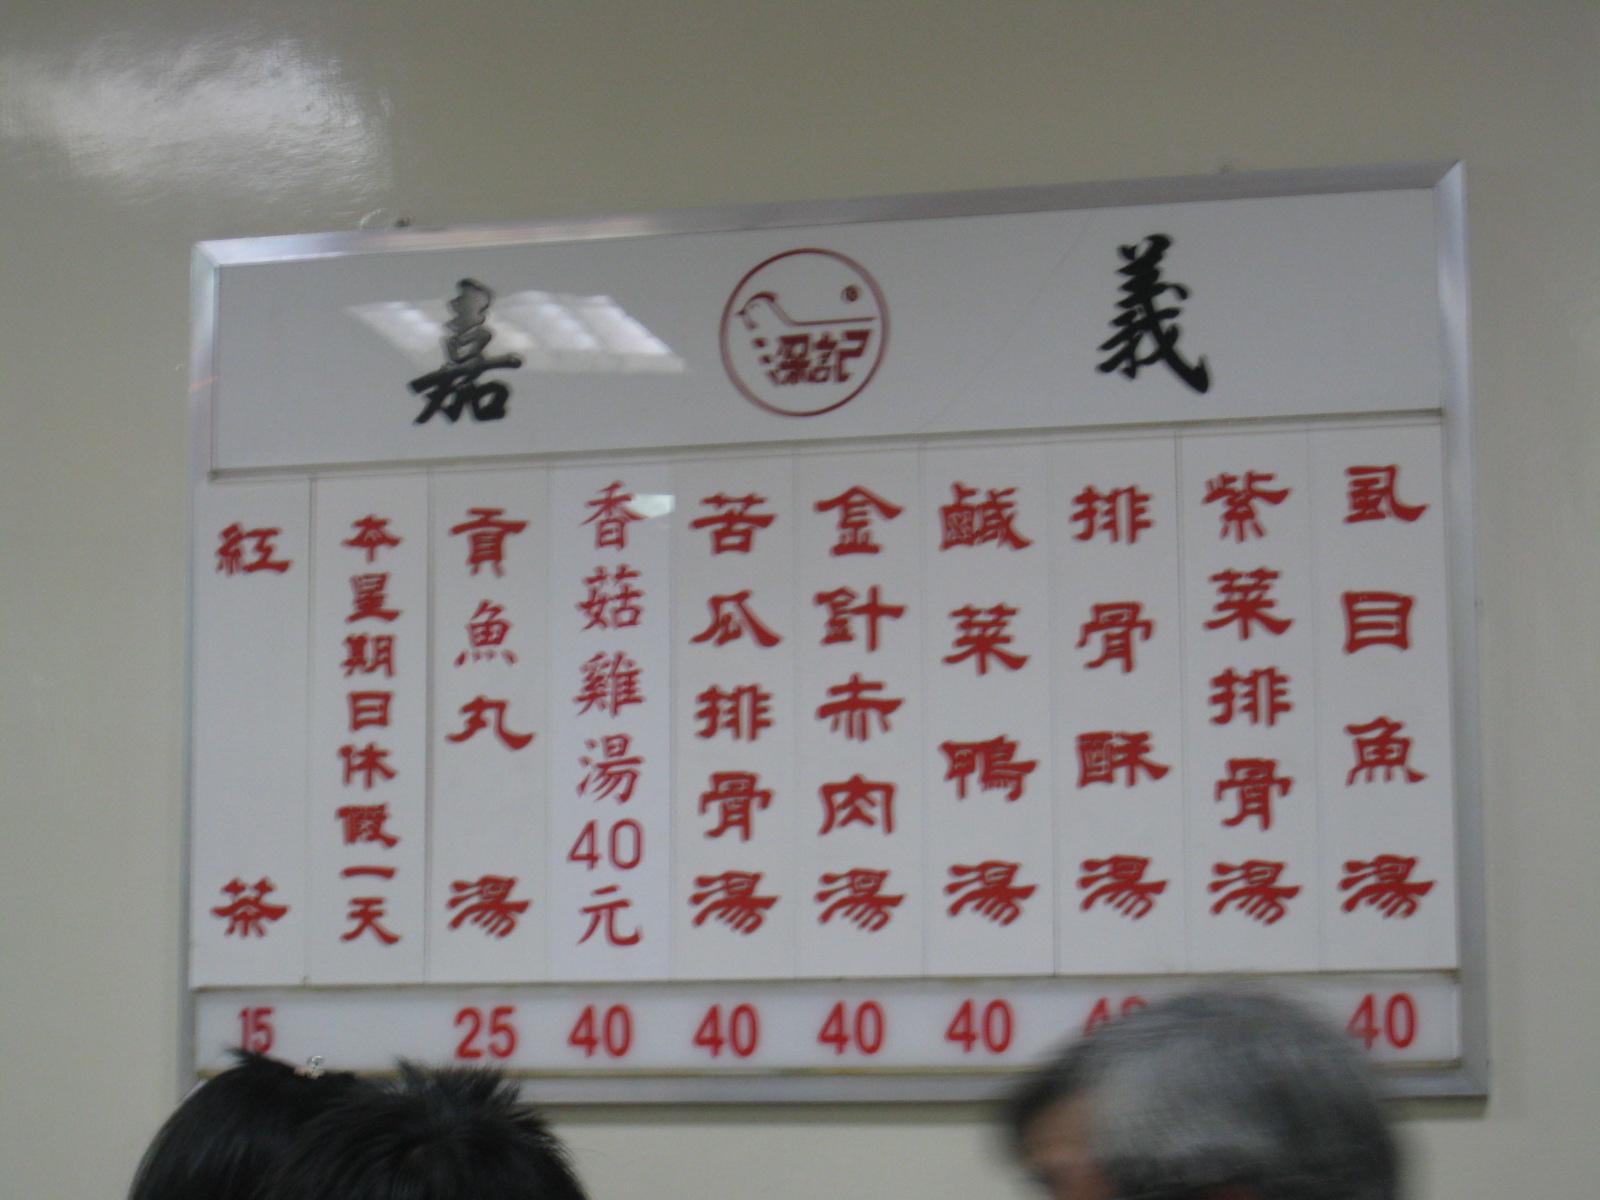 嘉 梁記 義
虱目魚湯
紫菜排骨湯
排骨酥湯
鹹菜鴨湯
金針赤肉湯
苦瓜排骨湯
香菇雞湯40元
貢魚丸湯
本星期日休假一天
紅茶
15 25 40 40 40 40 40 40